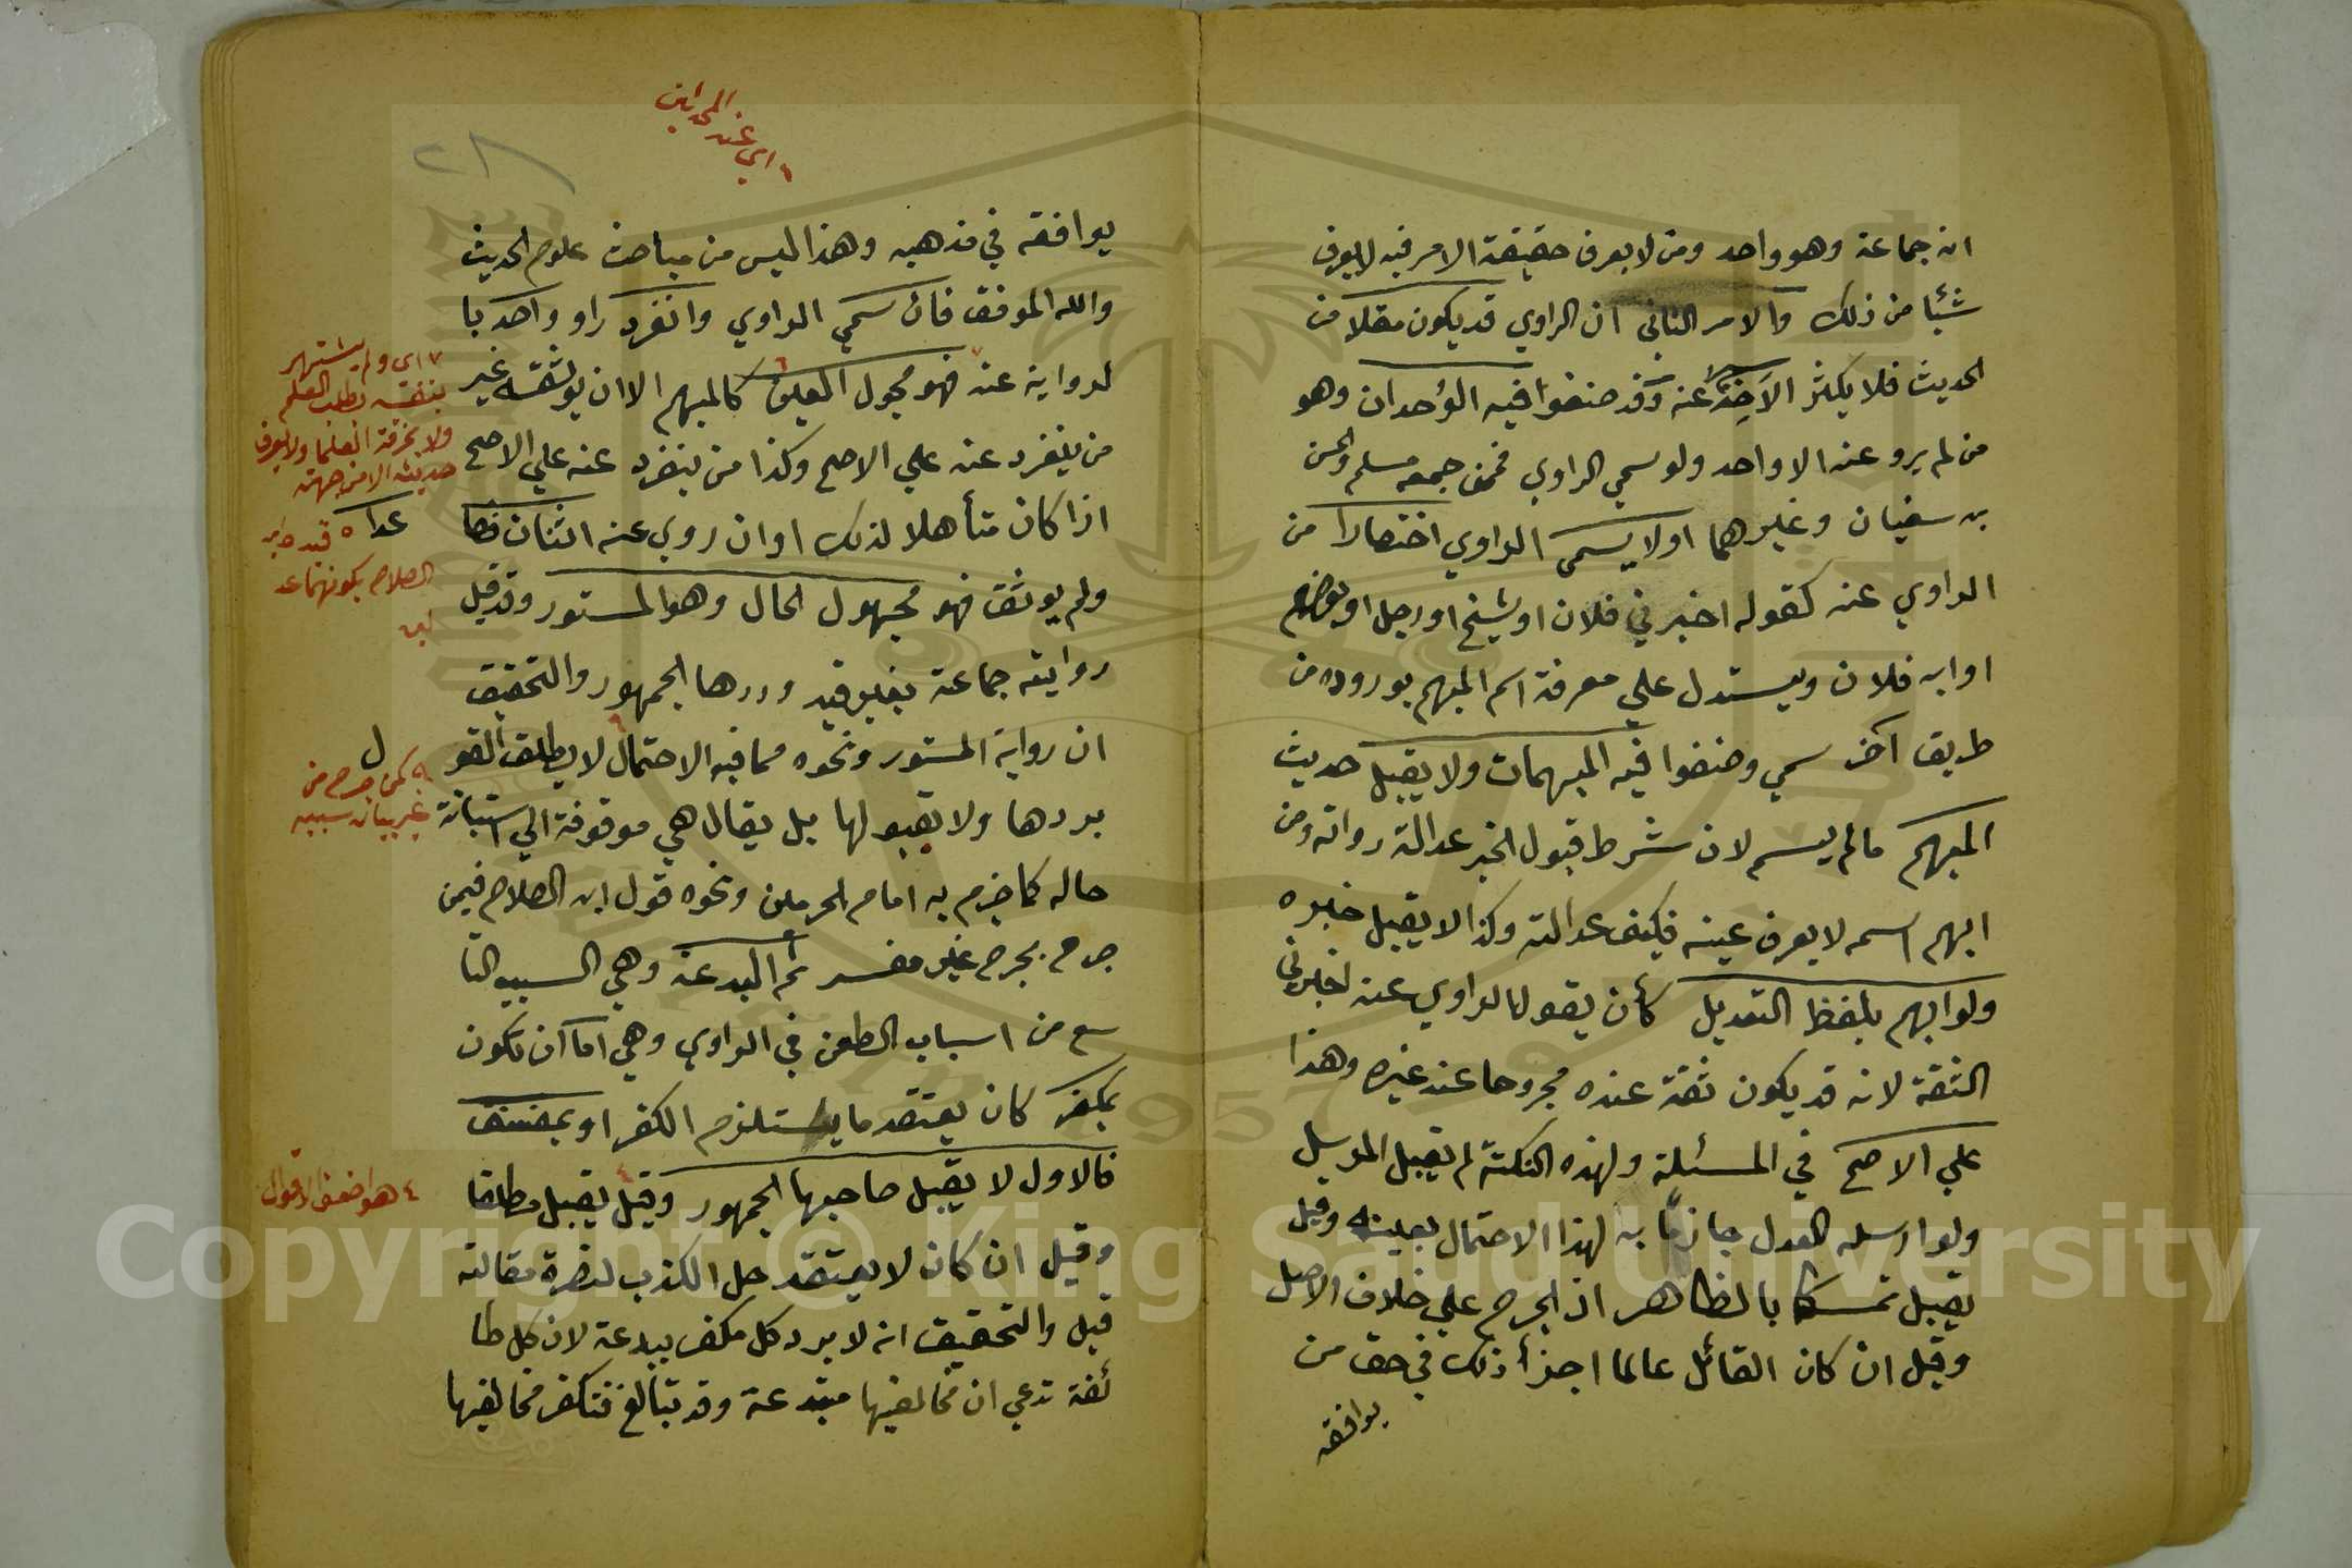 انه جماعة وهو واحد ومن لا يعرف حقيقة الامر فيه لا يعرف
شيئا من ذلك والامر الثاني ان الراوي قد يكون مقلا من
الحديث فلا يكثر الاخذ عنه وقد صنفوا فيه الوحدان وهو
من لم يرو عنه الا واحد ولو سمي الراوي فممن جمعه مسلم والحسن
بن سفيان وغيرهما اولا يسمى الراوي اختصارا من
الراوي عنه كقوله اخبرني فلان او شيخ او رجل او بعضهم
او ابن فلان ويستدل علي معرفة اسم المبهم بوروده من
طريق آخر سمي وصنفوا فيه المبهمات ولا يقبل حديث
المبهم مالم يسم لان شرط قبول الخبر عدالة رواته ومن
ابهم اسمه لا يعرف عينه فكيف عدالته وكذا لا يقبل خبره
ولو ابهم بلفظ التعديل كأن يقول الراوي عنه اخبرني
الثقة لانه قد يكون ثقة عنده مجروحا عند غيره وهذا
علي الاصح في المسئلة ولهذه النكتة لم يقبل المرسل
ولو ارسله العدل جازمًا به لهذا الاحتمال بعينه وقيل
يقبل تمسكا بالظاهر اذ الجرح علي خلاف الاصل
وقيل ان كان القائل عالما اجزأ ذلك في حق من
يوافقه
٦ اي عند المحدثين
٢٨
يوافقه في مذهبه وهذا ليس من مباحث علوم الحديث
والله الموفق فان سمي الراوي وانفرد راو واحد با
لرواية عنه فهو مجهول العين كالمبهم الا ان يوثقه غير
من ينفرد عنه علي الاصح وكذا من ينفرد عنه علي الاصح
اذا كان متأهلا لذلك او ان روي عنه اثنان فصا
عدا
ولم يوثق فهو مجهول الحال وهو المستور وقد قبل
روايته جماعة بغير قيد وردها الجمهور والتحقيق
ان رواية المستور ونحوه مما فيه الاحتمال لا يطلق القو
ل
بردها ولا بقبولها بل يقال هي موقوفة الي استبانة
حاله كما جزم به امام الحرمين ونحوه قول ابن الصلاح فيمن
جرح بجرح غير مفسر ثم البدعة وهي السبب التا
سع من اسباب الطعن في الراوي وهي اما ان تكون
بمكفر كان يعتقد ما يستلزم الكفر او بمفسق
فالاول لا يقبل صاحبها الجمهور وقيل يقبل مطلقا
وقيل ان كان لا يعتقد حل الكذب لنصرة مقالته
قبل والتحقيق انه لا يرد كل مكفر ببدعة لان كل طا
ئفة تدعي ان مخالفيها مبتدعة وقد تبالغ فتكفر مخالفيها
٧ اي ولم يشتهر
بنفسه بطلب العلم
ولا بمعرفة العلما ولا يعرف
حديثه الا من جهته
٥ قيده ابن
الصلاح بكونهما عد
لين
٩ كمن جرح من
غير بيان سببه
٤ هو اضعف الاقوال
Copyright © King Saud University
1957